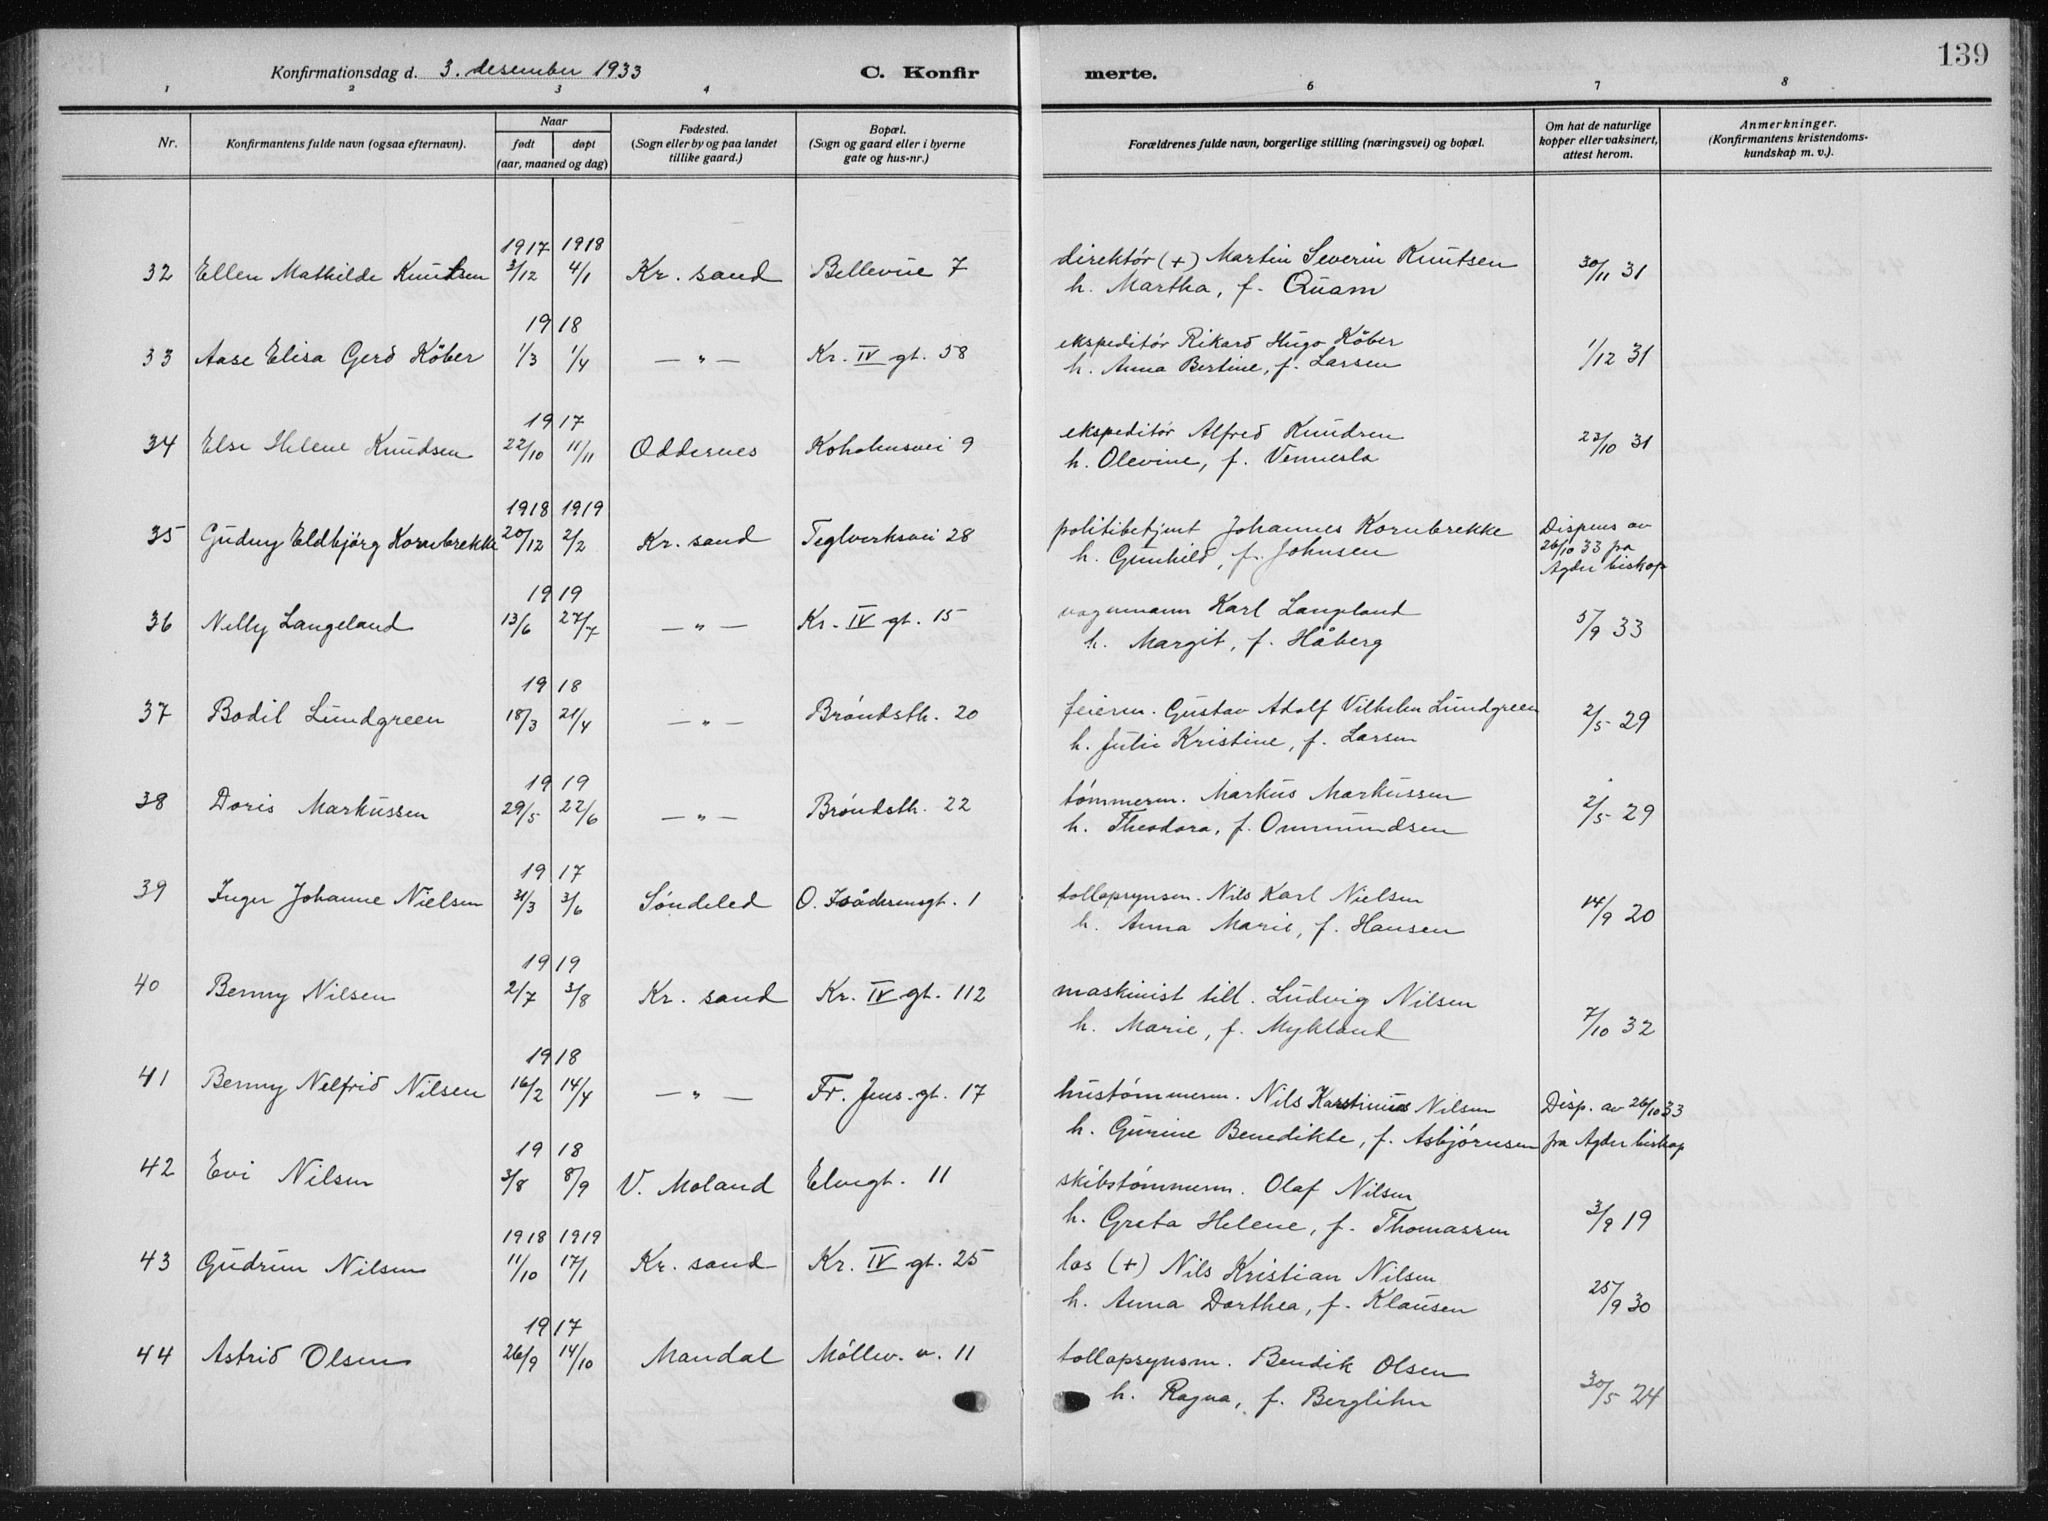 139
Konfirmationsdag d. 3. desember 1933 C. Konfir merte.
1 2 3 4 6 7 8
Nr. Konfirmantens fulde navn (ogsaa efternavn). Naar født døpt (aar, maaned og dag) Fødested. (Sogn eller by og paa landet tillike gaard.) Bopæl. (Sogn og gaard eller i byerne gate og hus-nr.) Forældrenes fulde navn, borgerlige stilling (næringsvei) og bopæl. Om hat de naturlige kopper eller vaksinert, attest herom. Anmerkninger. (Konfirmantens kristendoms-kundskap m. v.).
1917 1918
32 Ellen Mathilde Knutsen 3/12 4/1 Kr. sand Bellevue 7 direktør (+) Martin Severin Knutsen 30/11 31
h. Martha, f. Quam
1918
33 Aase Elisa Gerd Köber 1/3 1/4 — " — Kr. IV gt. 58 ekspeditør Rikard Hugo Köber 1/12 31
h. Anna Bertine, f. Larsen
1917
34 Else Helene Knudsen 22/10 11/11 Oddernes Koholmsvei 9 ekspeditør Alfred Knudsen 23/10 31
h. Olevine, f. Vennesla
1918 1919
35 Gudny Eldbjörg Kornbrekke 20/12 2/2 Kr. sand Teglverksvei 28 politibetjent Johannes Kornbrekke Dispens av
h. Gunhild, f. Johnsen 26/10 33 fra
Agder biskop
1919
36 Nelly Langeland 13/6 27/7 — " — Kr. IV gt. 15 vognmann Karl Langeland 5/9 33
h. Margit, f. Håberg
1918
37 Bodil Lundgreen 18/3 21/4 — " — Bröndsth. 20 feierm. Gustav Adolf Vilhelm Lundgreen 2/5 29
h. Julie Kristine, f. Larsen
1919
38 Doris Markussen 29/5 22/6 — " — Bröndsth. 22 tömmerm. Markus Markussen 2/5 29
h. Theodora, f. Ommundsen
1917
39 Inger Johanne Nielsen 31/3 3/6 Söndeled O. 1 tollopsynsm. Nils Karl Nielsen 14/9 20
h. Anna Marie, f. Hansen
1919
40 Benny Nilsen 2/7 3/8 Kr. sand Kr. IV gt. 112 maskinist till. Ludvig Nilsen 7/10 32
h. Marie, f. Mykland
1918
41 Benny Nelfrid Nilsen 16/2 14/4 — " — Fr. Jens. gt. 17 hustömmerm. Nils Karstinius Nilsen Disp. av 26/10 33
h. Gurine Benedikte, f. Asbjörnsen fra Agder biskop
1918
42 Evi Nilsen 3/8 8/9 V. Moland Elvegt. 11 skibstömmerm. Olaf Nilsen 3/9 19
h. Greta Helene, f. Thomassen
1918 1919
43 Gudrun Nilsen 11/10 17/1 Kr. sand Kr. IV gt. 25 los (+) Nils Kristian Nilsen 25/9 30
h. Anna Dorthea, f. Klausen
1917
44 Astrid Olsen 26/9 14/10 Mandal Möllev. v. 11 tollopsynsm. Bendik Olsen 30/5 24
h. Ragna, f. Berglihn